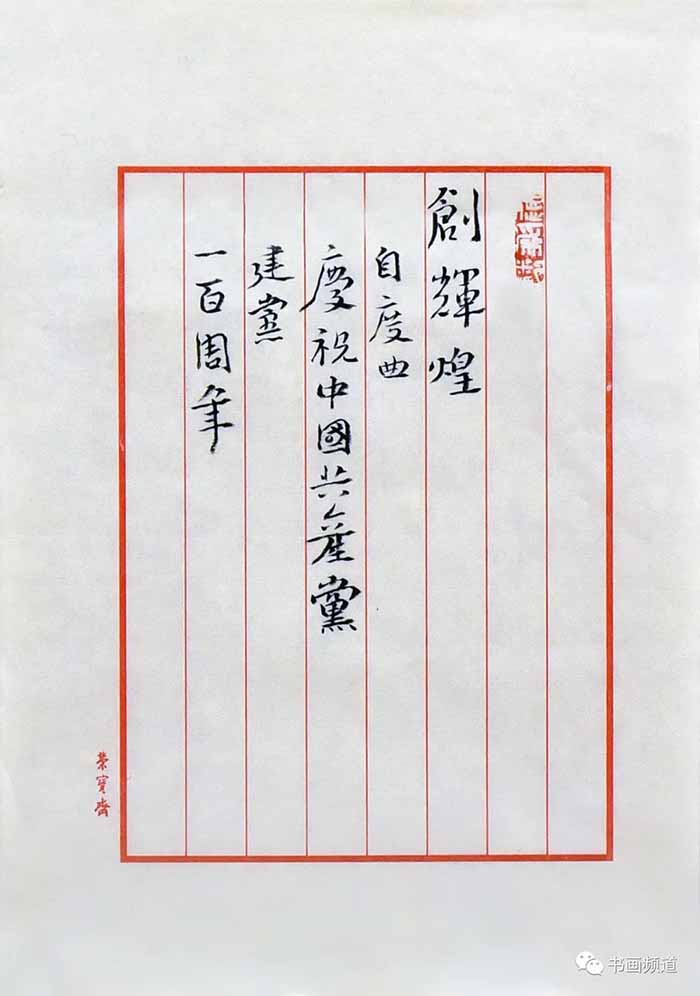 創輝煌
自度曲
慶祝中國共產黨
建黨
一百周年
榮寳齋
书画频道